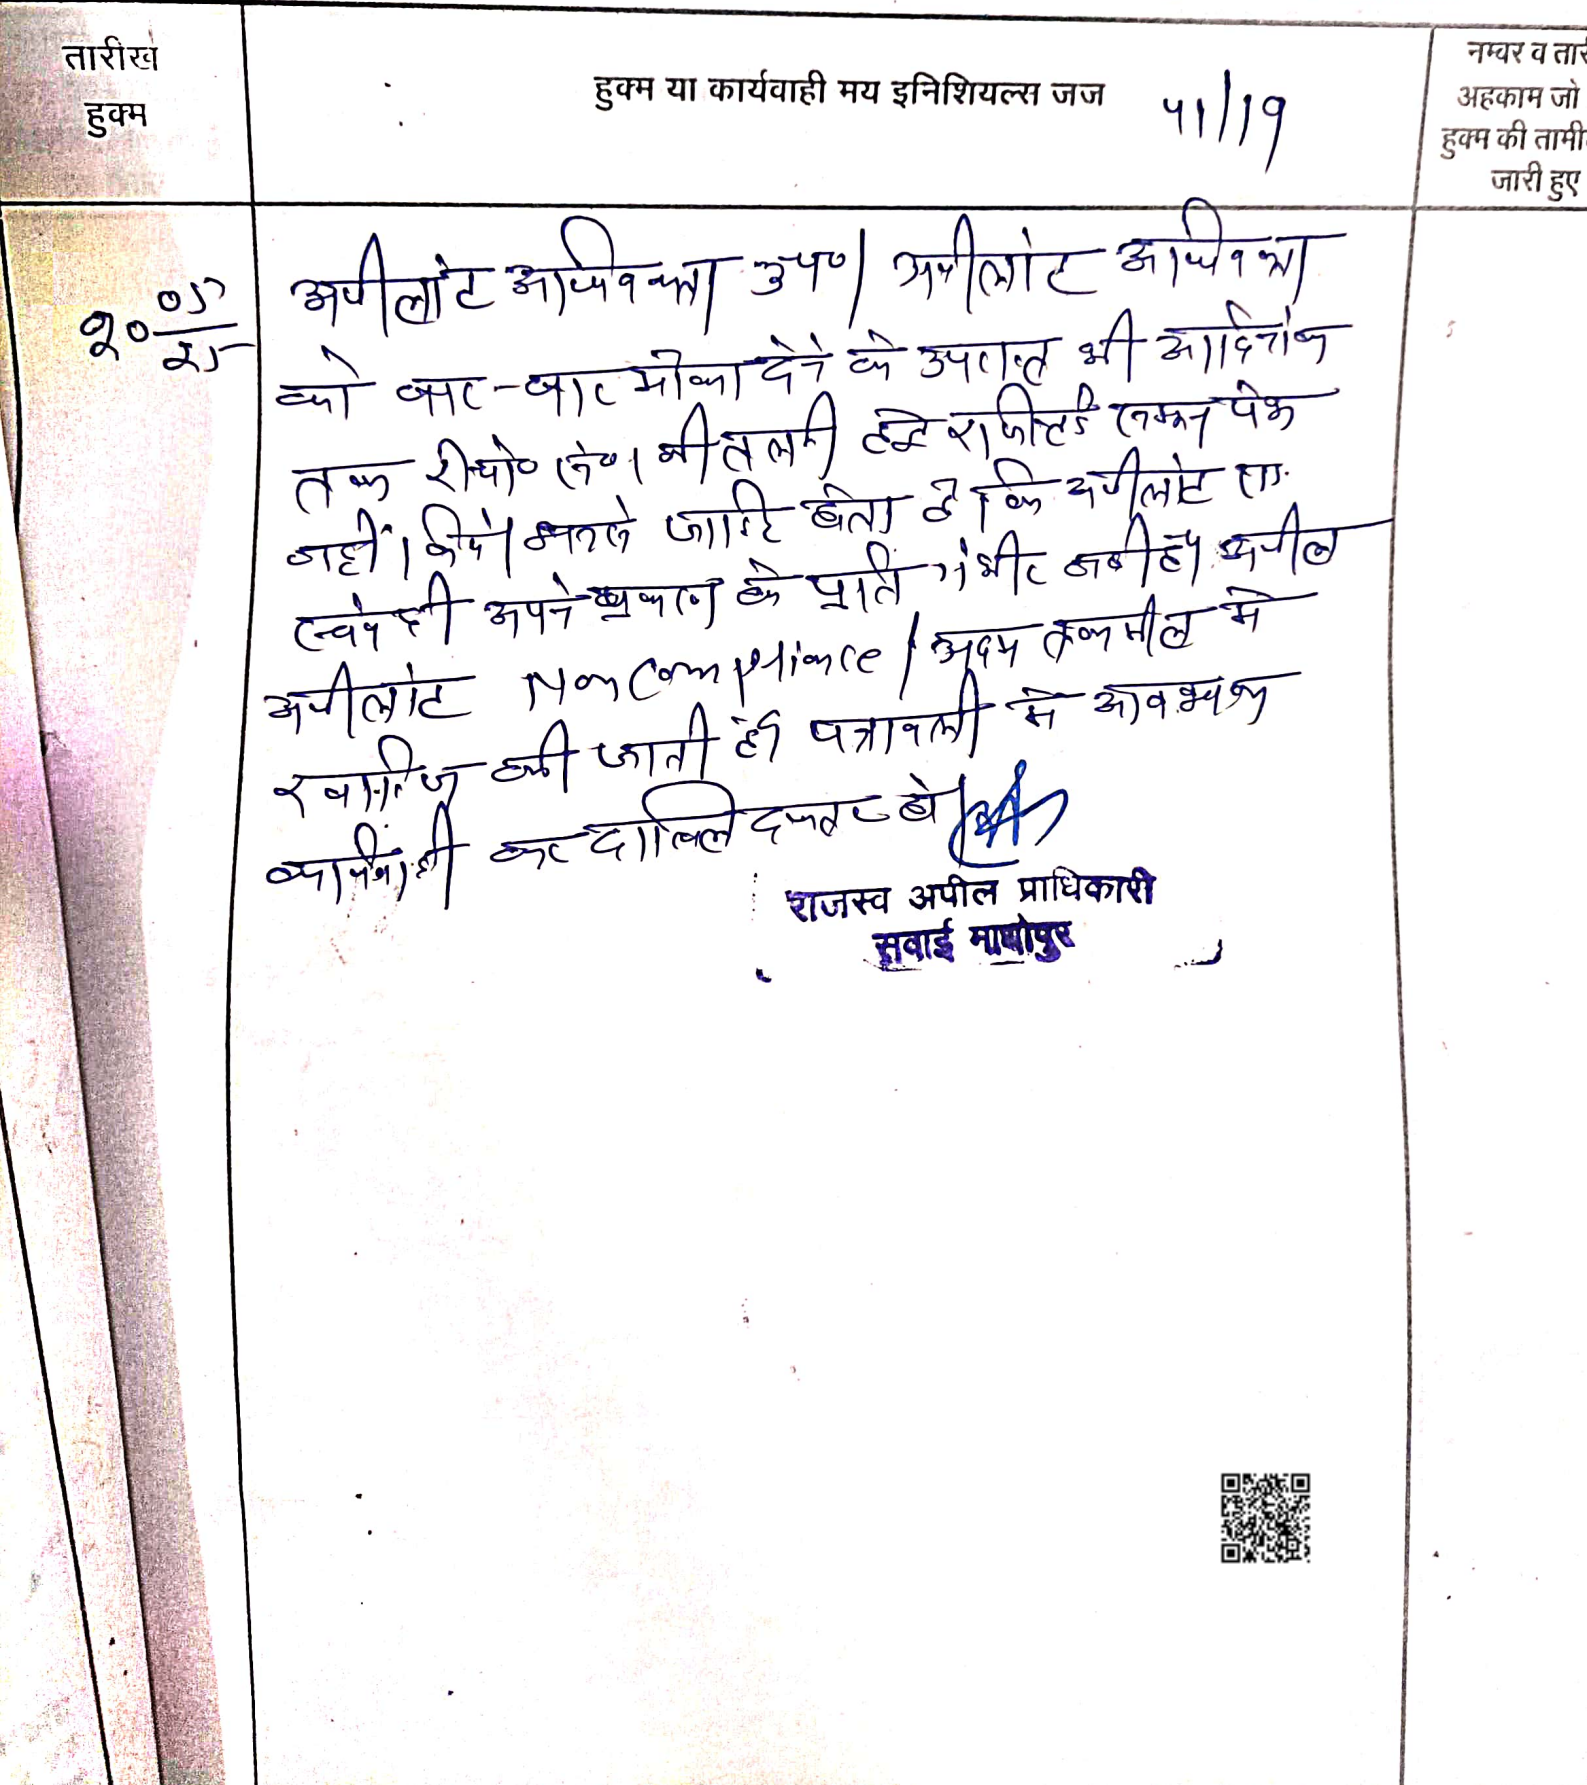 तारीख
हुक्म
हुक्म या कार्यवाही मय इनिशियल्स जज
41/19
नम्वर व तारी
अहकाम जो
हुक्म की तामी
जारी हुए
अपीलांट अधिवक्ता उप०। अपीलांट अधिवक्ता
को बार-बार मौका देने के उपरान्त भी आदिनांक
तक रेस्पो० की तलबी हेतु रजिस्टर्ड सम्मन पेश
नहीं किये। इससे जाहिर होता है कि अपीलांट
स्वयं ही अपने प्रकरण के प्रति गंभीर नहीं है। अपील
अपीलांट Non Compliance / अदम तकमील में
खारिज की जाती है। पत्रावली में आवश्यक
कार्यवाही कर दाखिल दफ्तर हो।
राजस्व अपील प्राधिकारी
सवाई माधोपुर